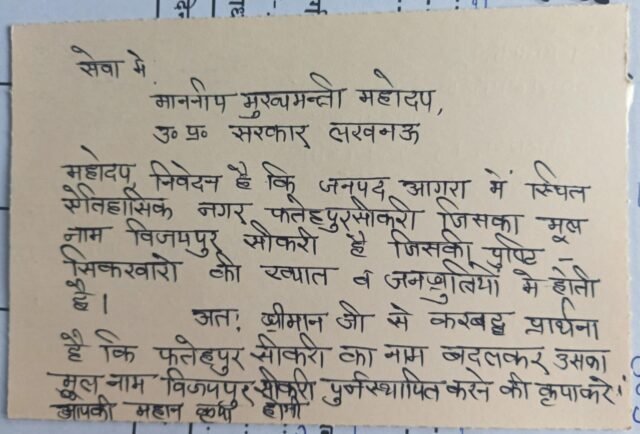 सेवा में
माननीय मुख्यमन्त्री महोदय,
उ० प्र० सरकार लखनऊ
महोदय, निवेदन है कि जनपद आगरा में स्थित
ऐतिहासिक नगर, फतेहपुरसीकरी जिसका मूल
नाम विजयपुर सीकरी है जिसकी पुष्टि -
सिकरवारों की ख्यात व जनश्रुतियों में होती
है।
अतः श्रीमान जी से करबद्ध प्रार्थना
है कि फतेहपुर सीकरी का नाम बदलकर उसका
मूल नाम विजयपुर सीकरी पुर्नस्थापित करने की कृपा करें।
आपकी महान कृपा होगी